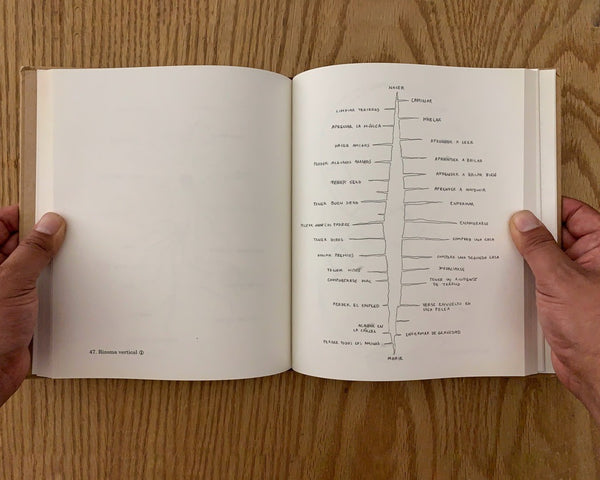 47. Rizoma vertical ①
NACER
CAMINAR
LIMPIAR
HABLAR
APRECIAR LA MÚSICA
APRENDER A LEER
HACER AMIGOS
APRENDER A BAILAR
PERDER ALGUNOS AMIGOS
APRENDER A BAILAR BIEN
SEXO
APRENDER A CONDUCIR
TENER BUEN SEXO
ENFERMAR
PADRES
ENAMORARSE
TENER HIJOS
COMPRAR UNA CASA
GANAR PREMIOS
COMPRAR UNA SEGUNDA CASA
TENER
DIVORCIARSE
COMPORTARSE MAL
TENER UN ACCIDENTE
DE TRÁFICO
PERDER EL EMPLEO
VERSE ENVUELTO EN
UNA PELEA
ACABAR EN
LA CÁRCEL
ENFERMAR DE GRAVEDAD
PERDER TODOS LOS AMIGOS
MORIR